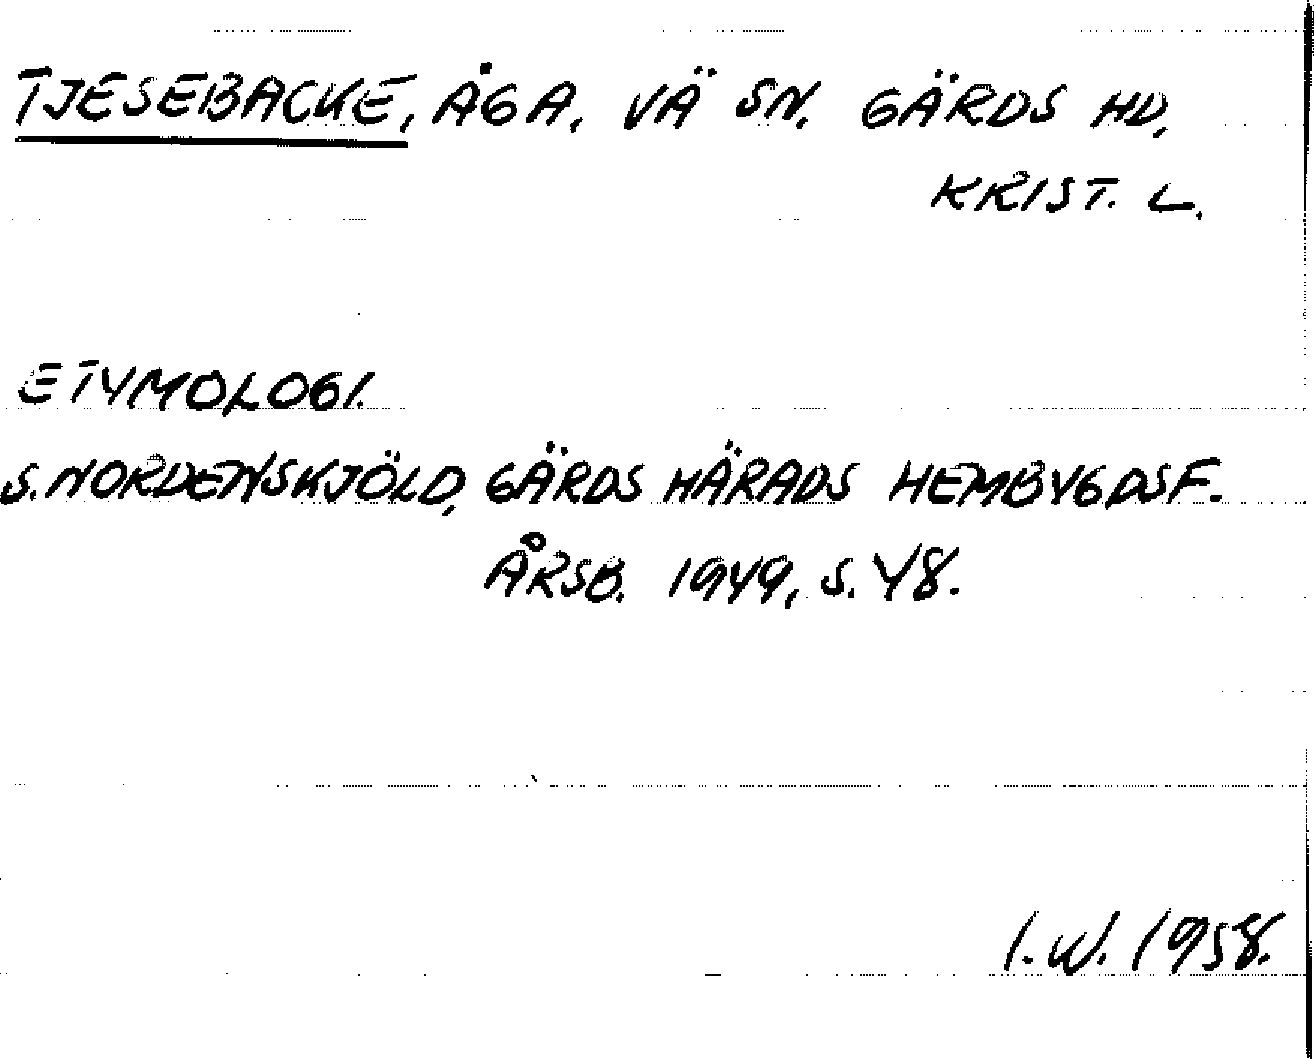 TJESEBACKE, ÅGA. VÄ SN. GÄRDS HD,
KRIST. L.
ETYMOLOGI.
S. NORDENSKJÖLD, GÄRDS HÄRADS HEMBYGDSF.
ÅRSB. 1949, S. 48.
I. W. 1958.